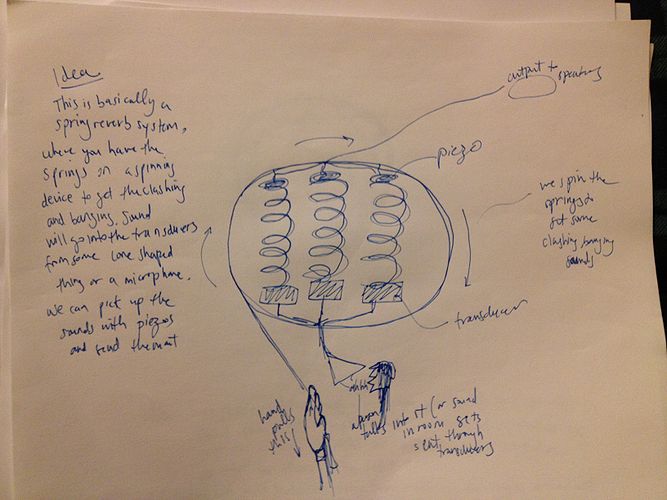 Idea
This is basically a
spring reverb system,
where you have the
springs on a spinning
device to get the clashing
and banging. Sound
will go into the transducers
from some cone shaped
thing or a microphone.
we can pick up the
sounds with piezos
and send them out
output + speakers
piezo
we spin the
springs to
get some
clashing banging
sounds
transducer
hand
pulls
this
ahhh
person
talks into it (or sound
in room gets
sent through
transducers